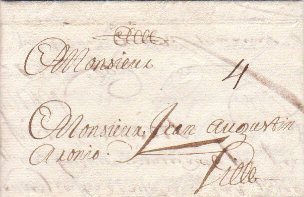 Monsieur
4
Monsieur, Jean Augustin
Aronio.
Lille